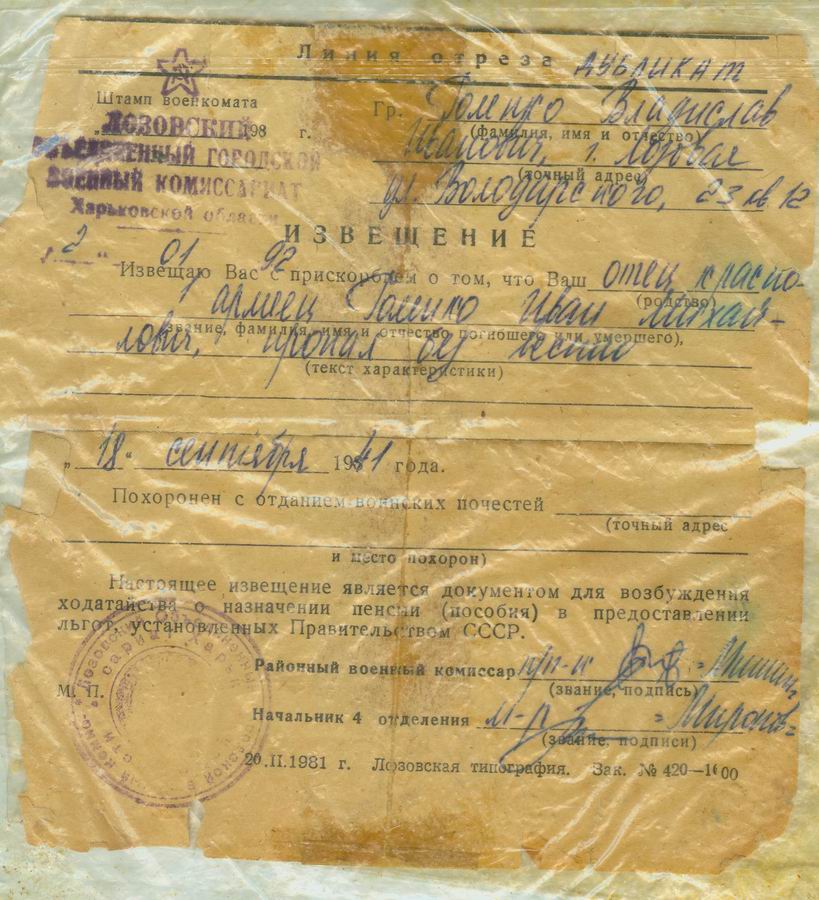 Линия отреза ДУБЛИКАТ
Штамп военкомата
„ 198 г.
ЛОЗОВСКИЙ
ОБЪЕДИНЕННЫЙ ГОРОДСКОЙ
ВОЕННЫЙ КОМИССАРИАТ
Харьковской области
„2“ 01 92
Гр. Гоменко Владислав
(фамилия, имя и отчество)
Иванович, г. Лозовая
(точный адрес)
ул. Володарского, 23 кв 12
ИЗВЕЩЕНИЕ
Извещаю Вас с прискорбием о том, что Ваш отец красно-
(родство)
армеец Гоменко Иван Михай-
(звание, фамилия, имя и отчество погибшего или умершего),
лович, пропал без вести
(текст характеристики)
„18“ сентября 1941 года.
Похоронен с отданием воинских почестей
(точный адрес
и место похорон)
Настоящее извещение является документом для возбуждения
ходатайства о назначении пенсии (пособия) в предоставлении
льгот, установленных Правительством СССР.
Районный военный комиссар п/п-к
(звание, подпись)
М. П.
Начальник 4 отделения м-р
(звание, подписи)
20.II.1981 г. Лозовская типография. Зак. № 420—1600